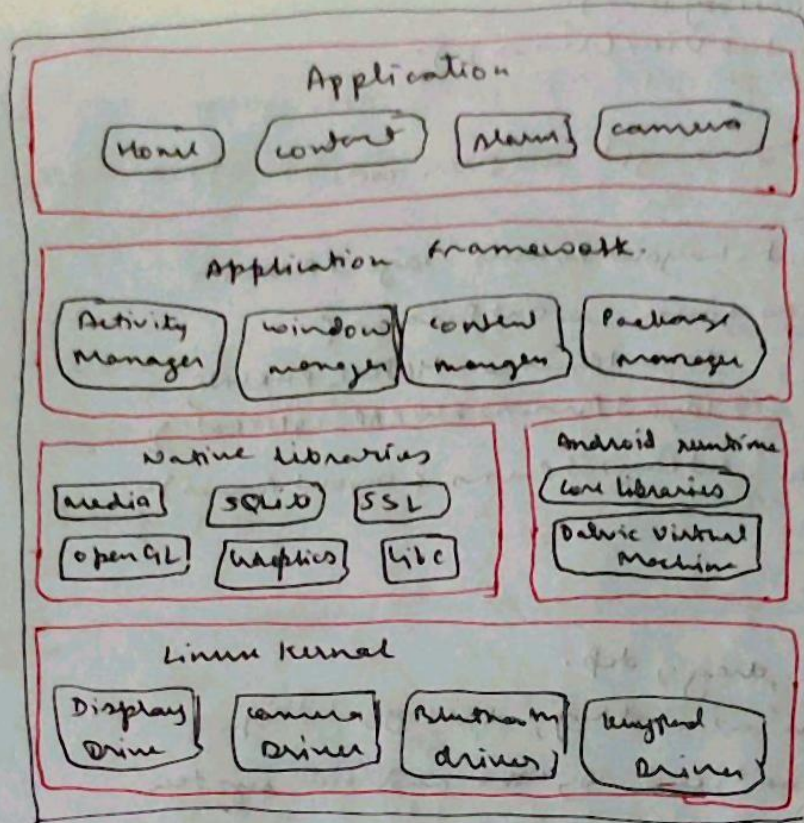 Application
Home contact Alarm camera
Application Framework.
Activity Manager
window manager
content manager
Package manager
Native Libraries
media SQLite SSL
openGL Graphics libc
Android runtime
Core Libraries
Dalvic Virtual Machine
Linux Kernel
Display Drive
camera Driver
driver
keypad Driver